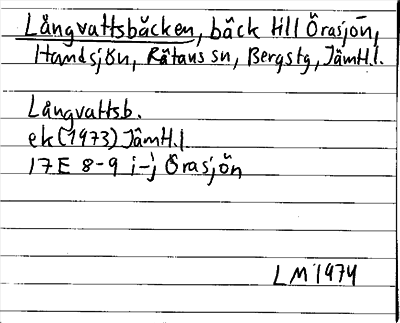 Långvattsbäcken, bäck till Örasjön,
Handsjön, Rätans sn, Bergs tg, Jämtl.
Långvattsb.
ek (1973) Jämtl
17E 8-9 i-j Örasjön
LM 1974